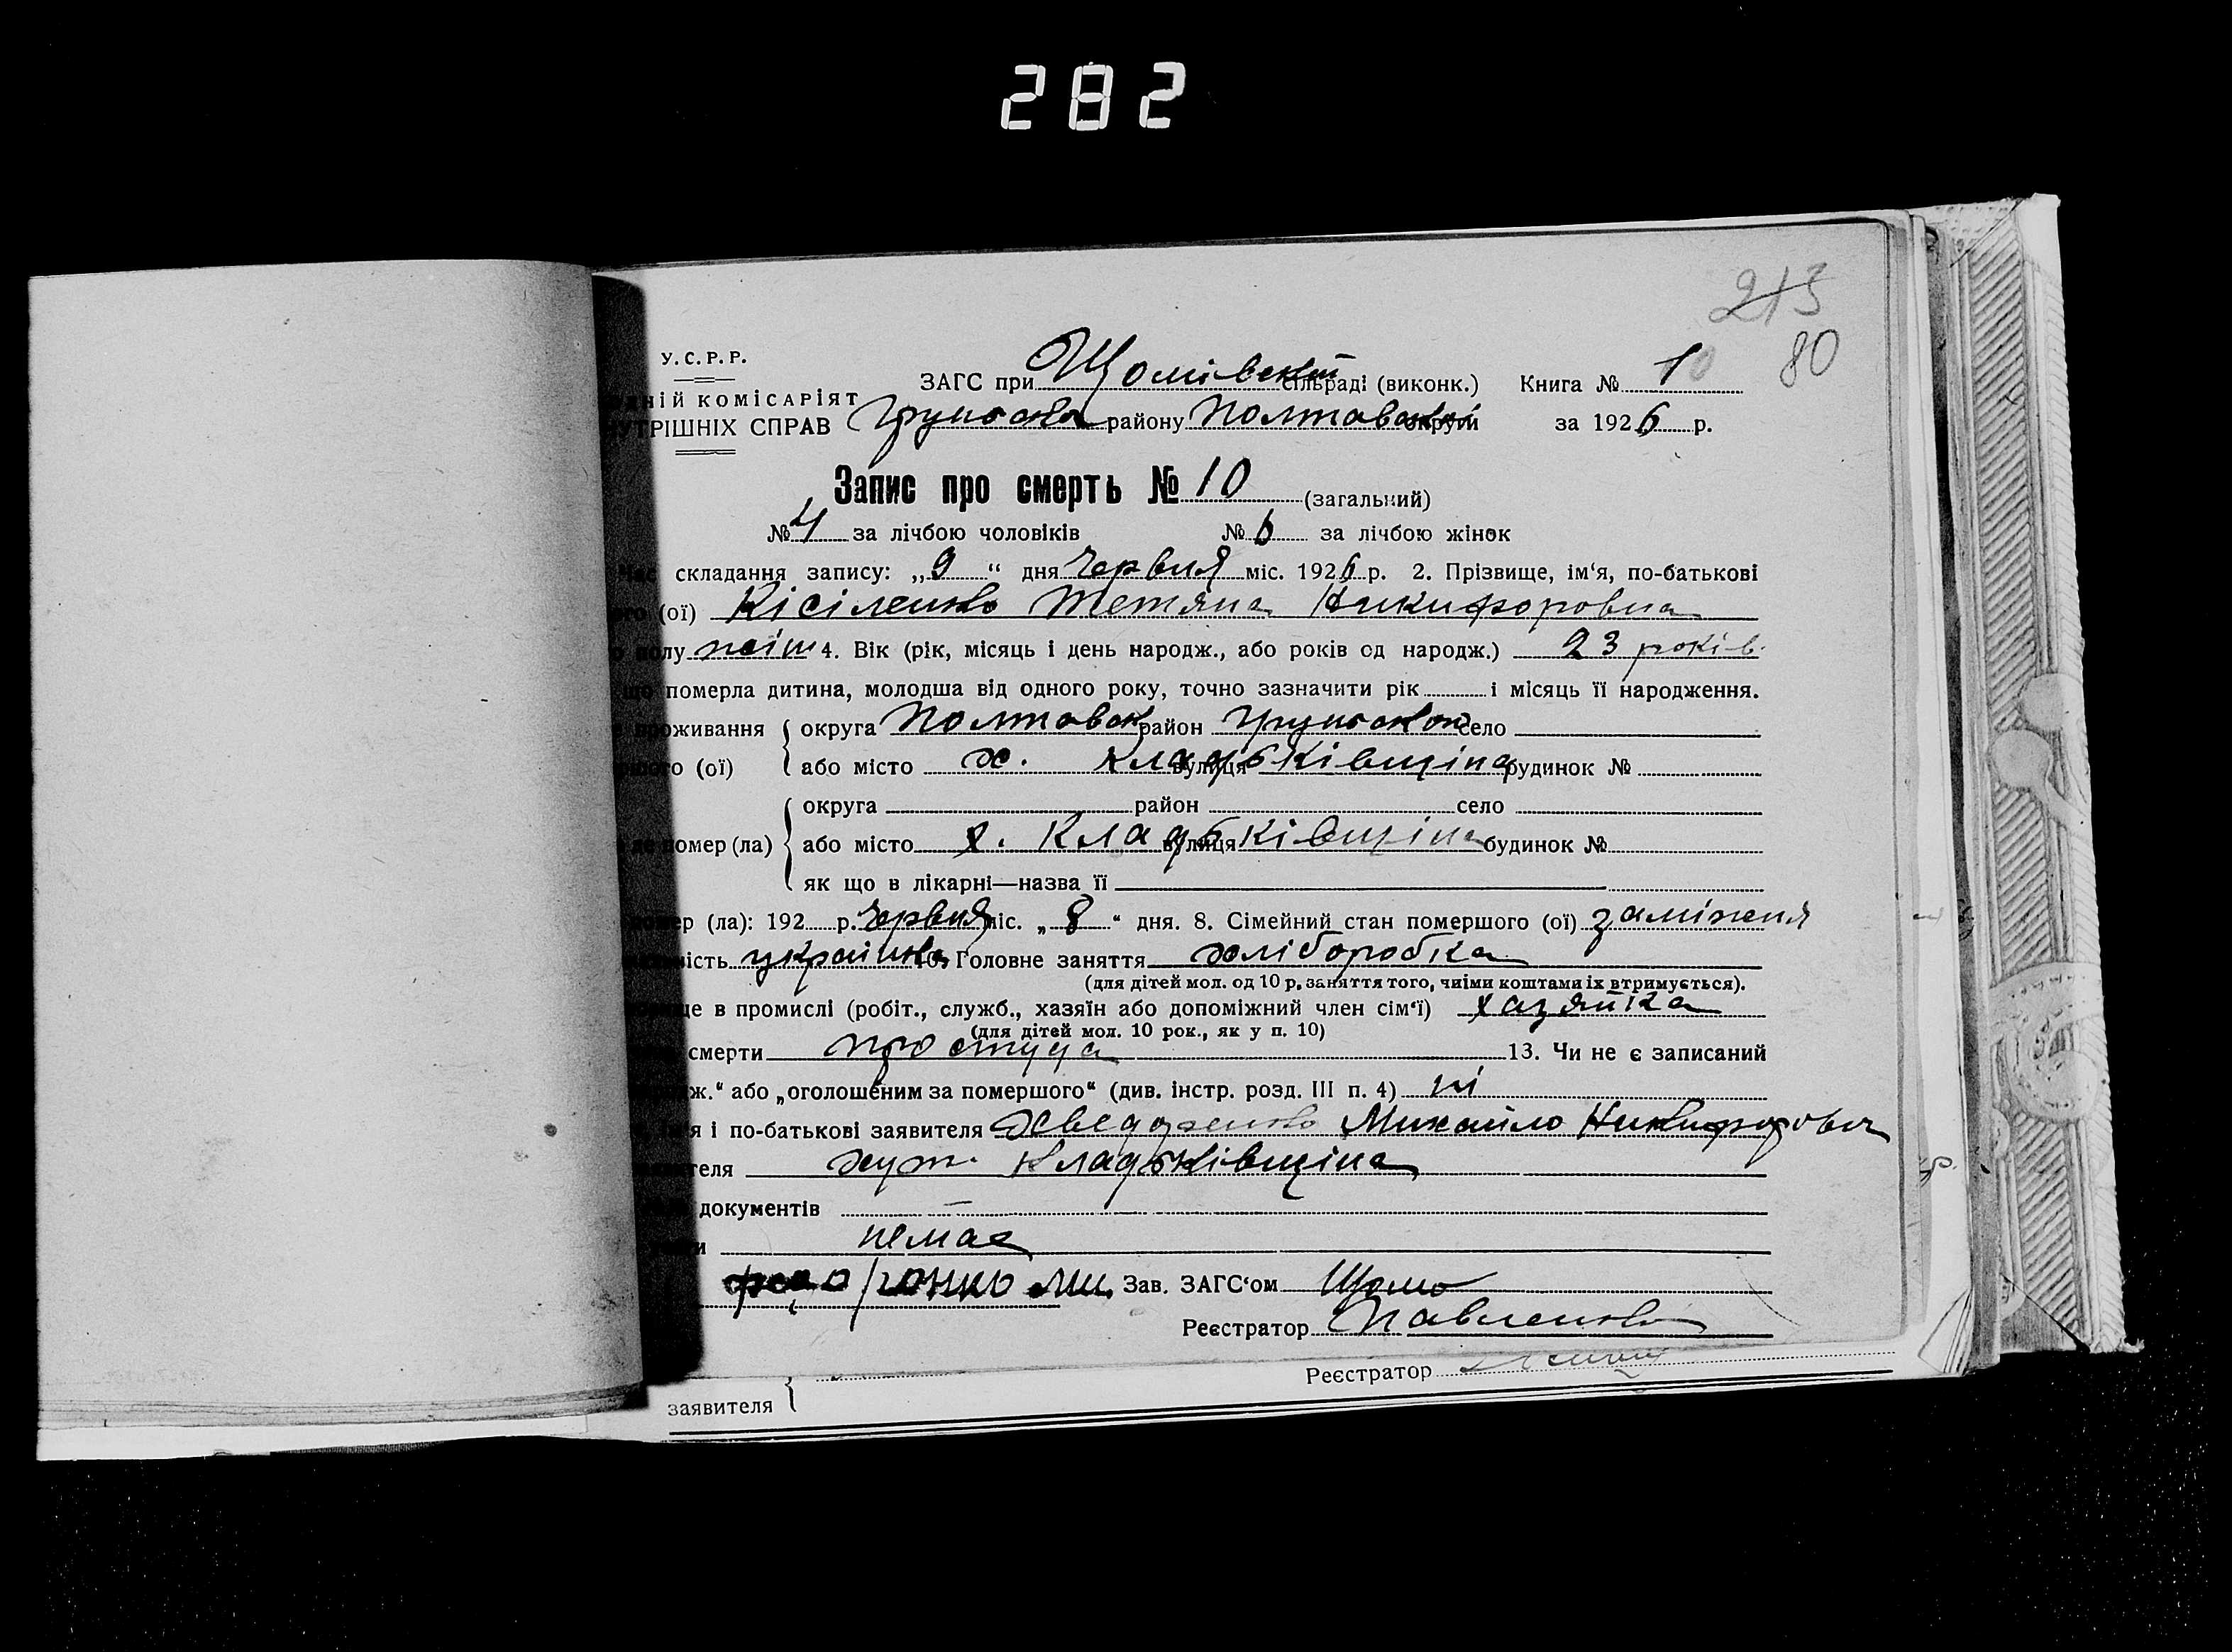 282
213
80
У.С.Р.Р.
ЗАГС при Щомівській сільраді (виконк.) Книга № 10
НІЙ КОМІСАРІЯТ
УТРІШНІХ СПРАВ району Полтавської округи за 1926 р.
Запис про смерть № 10 (загальний)
№ 4 за лічбою чоловіків № 6 за лічбою жінок
складання запису: „9“ дня червня міс. 1926 р. 2. Прізвище, ім‘я, по-батькові
(ої) Кісіленко Тетяна Никифоровна
полу жін 4. Вік (рік, місяць і день народж., або років од народж.) 23 років
що померла дитина, молодша від одного року, точно зазначити рік і місяць її народження.
проживання округа Полтавськ район село
(ої) або місто х. Кладьківщина вулиця будинок №
округа район село
помер (ла) або місто х. Кладьківщина вулиця будинок №
як що в лікарні—назва її
ер (ла): 192 р. червня міс. „8“ дня. 8. Сімейний стан помершого (ої) заміжня
ність українка 10. Головне заняття хліборобка
(для дітей мол. од 10 р, заняття того, чиїми коштами їх втримується).
ще в промислі (робіт., служб., хазяїн або допоміжний член сім‘ї) хазяйка
(для дітей мол. 10 рок., як у п. 10)
смерти простуда 13. Чи не є записаний
ж.“ або „оголошеним за помершого“ (див. інстр. розд. III п. 4) ні
я і по-батькові заявителя Михайло Никифорович
теля хут. Кладьківщина
документів —
немає
Зав. ЗАГС‘ом
Реєстратор Павленко
Реєстратор
заявителя